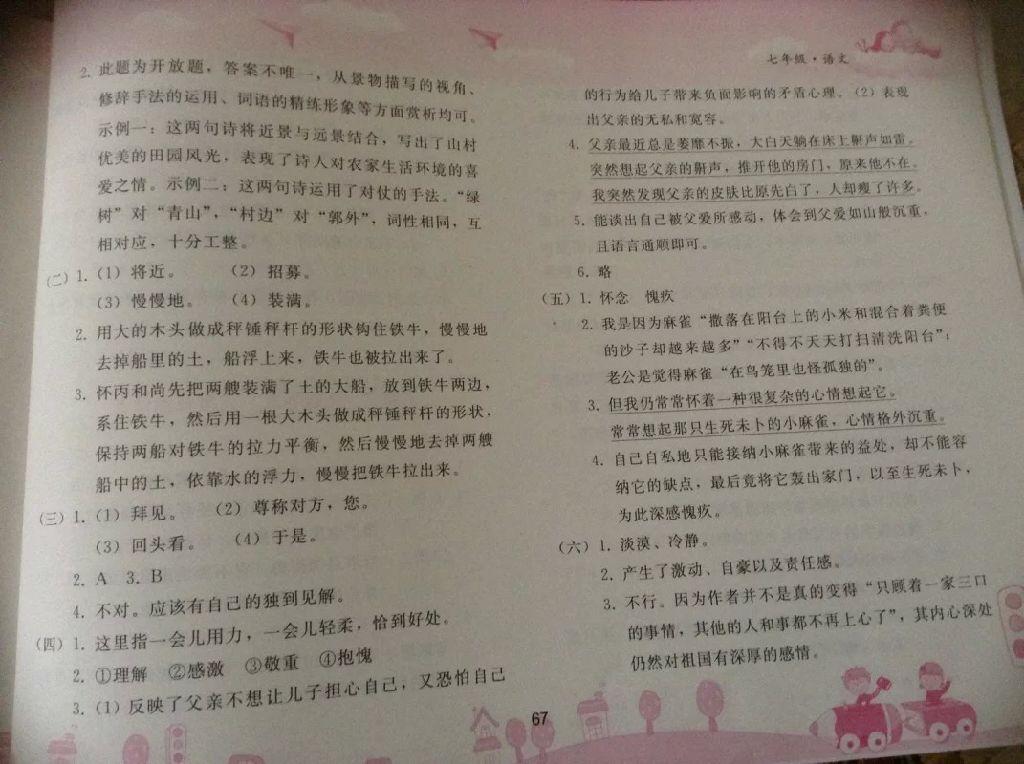 七年级·语文
2. 此题为开放题，答案不唯一，从景物描写的视角、
修辞手法的运用、词语的精练形象等方面赏析均可。
示例一：这两句诗将近景与远景结合，写出了山村
优美的田园风光，表现了诗人对农家生活环境的喜
爱之情。示例二：这两句诗运用了对仗的手法。“绿
树”对“青山”，“村边”对“郭外”，词性相同，互
相对应，十分工整。
(二) 1. (1) 将近。 (2) 招募。
(3) 慢慢地。 (4) 装满。
2. 用大的木头做成秤锤秤杆的形状钩住铁牛，慢慢地
去掉船里的土，船浮上来，铁牛也被拉出来了。
3. 怀丙和尚先把两艘装满了土的大船，放到铁牛两边，
系住铁牛，然后用一根大木头做成秤锤秤杆的形状，
保持两船对铁牛的拉力平衡，然后慢慢地去掉两艘
船中的土，依靠水的浮力，慢慢把铁牛拉出来。
(三) 1. (1) 拜见。 (2) 尊称对方，您。
(3) 回头看。 (4) 于是。
2. A 3. B
4. 不对。应该有自己的独到见解。
(四) 1. 这里指一会儿用力，一会儿轻柔，恰到好处。
2. ①理解 ②感激 ③敬重 ④抱愧
3. (1) 反映了父亲不想让儿子担心自己，又恐怕自己
的行为给儿子带来负面影响的矛盾心理。(2) 表现
出父亲的无私和宽容。
4. 父亲最近总是萎靡不振，大白天躺在床上鼾声如雷。
突然想起父亲的鼾声，推开他的房门，原来他不在。
我突然发现父亲的皮肤比原先白了，人却瘦了许多。
5. 能谈出自己被父爱所感动，体会到父爱如山般沉重，
且语言通顺即可。
6. 略
(五) 1. 怀念 愧疚
2. 我是因为麻雀“撒落在阳台上的小米和混合着粪便
的沙子却越来越多”“不得不天天打扫清洗阳台”；
老公是觉得麻雀“在鸟笼里也怪孤独的”。
3. 但我仍常常怀着一种很复杂的心情想起它。
常常想起那只生死未卜的小麻雀，心情格外沉重。
4. 自己自私地只能接纳小麻雀带来的益处，却不能容
纳它的缺点，最后竟将它轰出家门，以至生死未卜，
为此深感愧疚。
(六) 1. 淡漠、冷静。
2. 产生了激动、自豪以及责任感。
3. 不行。因为作者并不是真的变得“只顾着一家三口
的事情，其他的人和事都不再上心了”，其内心深处
仍然对祖国有深厚的感情。
67